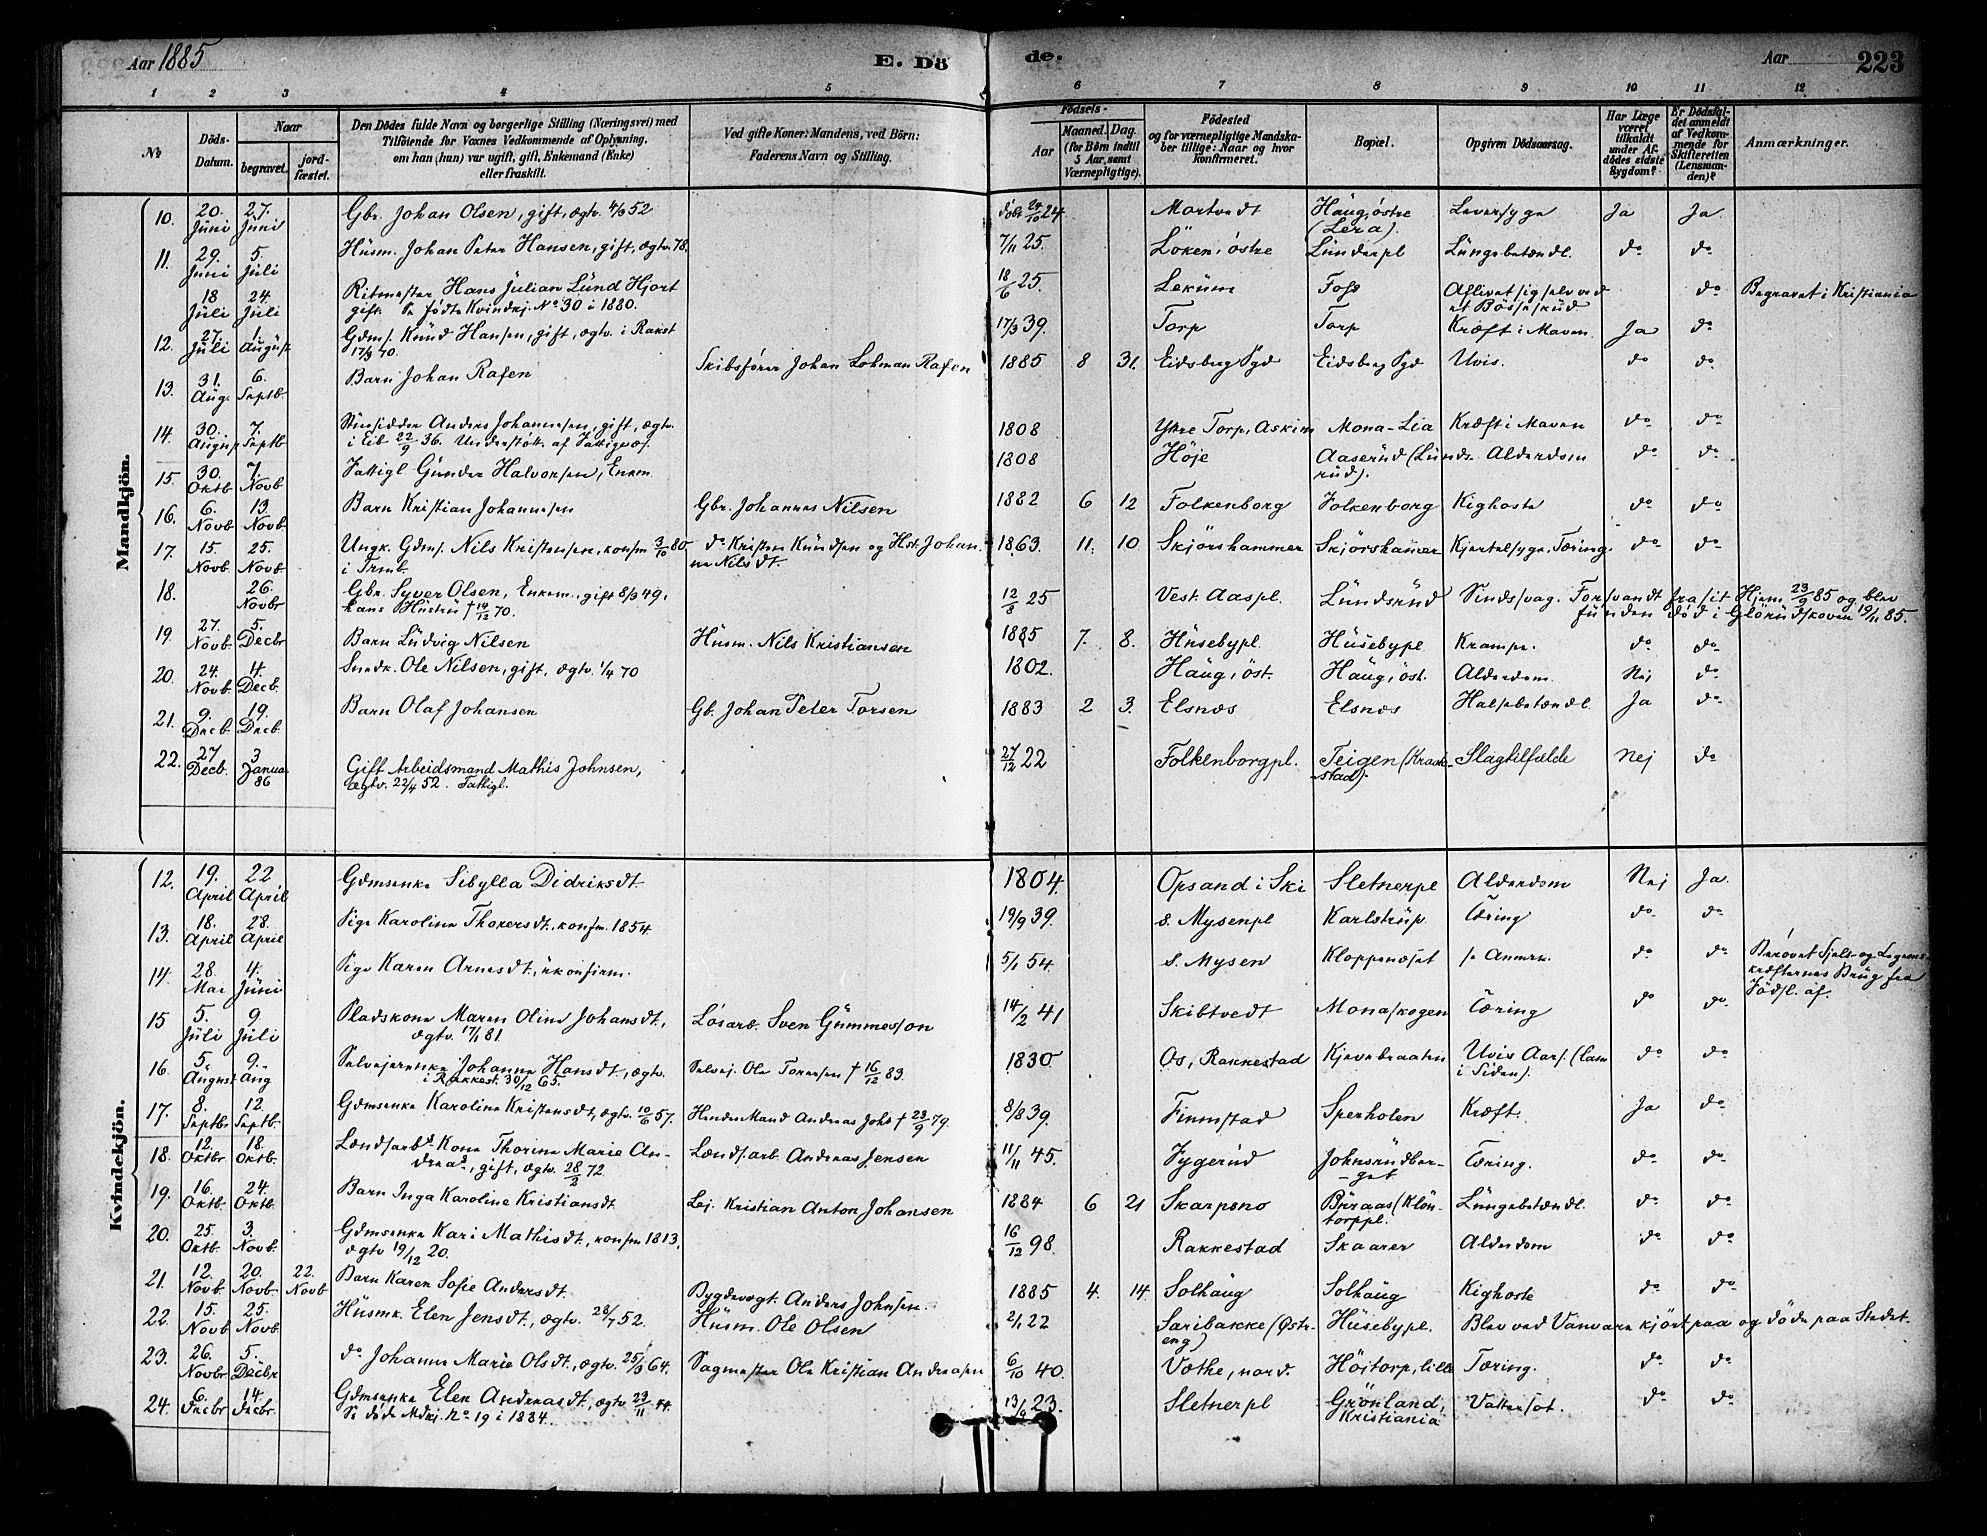 Aar 1885 E. Dö de. Aar 223
1 2 3 4 5 6 7 8 9 10 11 12
№ Döds-Datum. Naar begravet. jord-fæstet. Den Dödes fulde Navn og borgerlige Stilling (Næringsvei) med Tilföiende for Voxnes Vedkommende af Oplysning, om han (hun) var ugift, gift, Enkemand (Enke) eller fraskilt. Ved gifte Koner: Mandens, ved Börn: Faderens Navn og Stilling. Födsels- Aar Maaned. Dag. (for Börn indtil 5 Aar, samt Værnepligtige). Födested og for værnepligtige Mandskaber tillige: Naar og hvor konfirmeret. Bopæl. Opgiven Dödsaarsag. Har Læge været tilkaldt under Afdödes sidste Sygdom? Er Dödsfaldet anmeldt af Vedkommende for Skifteretten (Lensmanden)? Anmærkninger.
Mandkjön.
10. 20. Juni 27. Juni Gbr. Johan Olsen, gift, ægtv. 4/9 52 döbt 24/10 24 Mortvedt Haug, östre (Lera). Leversyge Ja Ja
11. 29. Juni 5. Juli Husm. Johan Peter Hansen, gift, ægtv. 78. 7/11 25. Löken, östre Lunderpl Lungebetændl. do do
18 Juli 24. Juli Ritmester Hans Julian Lund Hjort
gift. Se födte Kvindkj. No 30 i 1880. 18/6 25. Lekum Foss Aflivet sig selv ved et Bösseskud do Begravet i Kristiania
12. 27. Juli 1. August Gdms. Knud Hansen, gift, ægtv. i Rakst
17/9 70. 17/3 39. Torp Torp Kræft i Maven Ja do
13. 31. Aug. 6. Septb. Barn Johan Rafen Skibsförer Johan Lohman Rafen 1885 8 31. Eidsberg Pgd Eidsberg Pgd Uvis. do do
14. 30. August 7. Septb Anders Johannesen, gift, ægtv.
i Eib 22/9 36. Understött. af Fattigvæs. 1808 Ytre Torp, Askim Mona-Lia Kræft i Maven do do
15. 30. Oktb 7. Novb Fattigl Gunder Halvorsen, Enkem. 1808 Höje Aaserud (Lundsrud). Alderdom do do
16. 6. Novb 13 Novb. Barn Kristian Johannesen Gbr. Johannes Nilsen 1882 6 12 Folkenborg Folkenborg Kighoste do do
17. 15. Novb 25. Novb. Ungk. Gdms. Nils Kristensen, konfm 3/10 80
i Trmb. do Kristen Knudsen og Hst. Johanne Nilsdt. 1863. 11. 10 Skjörshammer Skjörshamer Kjertelsyge. Tæring. do do
18. 26. Novbr Gbr. Syver Olsen, Enkem., gift 8/3 49,
hans Hustru † 14/12 70. 12/8 25 Vest. Aaspl. Lundsrud Sindssvag. Forsvandt fra sit Hjem 23/9 85 og blev
funden död i Glörudskoven 19/11 85.
19. 27. Novb 5. Decbr Barn Ludvig Nilsen Husm. Nils Kristiansen 1885 7. 8. Husebypl. Husebypl Krampe. do do
20. 24. Novb. 4. Decb. Smedk. Ole Nilsen, gift, ægtv. 1/4 70 1802. Haug, öst. Haug, öst. Alderdom. Nej do
21. 9. Decb. 19. Decb. Barn Olaf Johansen Gb. Johan Peter Torsen 1883 2 3. Elsnæs Elsnæs Halsbetændl. Ja do
22. 27 Decb. 3 Janua 86 Gift Arbeidsmand Mathis Johnsen,
ægtv. 22/4 52. Fattigl. 27/12 22 Folkenborgpl. Teigen (Krakstad). Slagtilfælde Nej do
Kvindekjön.
12. 19. April 22 April Gdmsenke Sibylla Didriksdt. 1804. Opsand i Ski Sletnerpl Alderdom Nej Ja.
13. 18. April 28. April Pige Karoline Thorersdt. konfm. 1854. 19/9 39. s. Mysenpl Karlstrup. Tæring do do
14. 28. Mai 4. Juni Pige Karen Arnesdt., ukonfirm. 5/1 54. s. Mysen Kloppendset se Anmrk. do do Berövet Sjels- og Legems-
kræfternes Brug fra
Födsl. af.
15 5. Juli 9. Juli Pladskone Maren Oline Johansdt,
ægtv. 17/1 81 Lösarb. Sven Gummesson 14/2 41 Skibtvedt Monaskogen Tæring do do
16. 5. August 9. Aug Selvejerenke Johanne Hansdt, ægtv.
i Rakkest. 30/12 65. Selvej. Ole Torersen † 16/12 83. 1830. Os, Rakkestad Kjevebraaten Uvis Aars. (Lam i Siden). do do
17. 8. Septb. 12. Septb. Gdmsenke Karoline Kristensdt, ægtv. 10/6 57. Hendes Mand Andreas Johs † 23/9 79. 8/8 39. Finnestad Sperholen Kræft. Ja do
18. 12. Oktbr 18. Oktb. Lændsarbs Kone Thorine Marie An-
dreasd, gift, ægtv. 28/2 72 Lændsarb. Andreas Jensen 11/11 45. Fygerud Johnsrudberget Tæring. do do
19. 16. Oktb. 24. Oktb. Barn Inga Karoline Kristiansdt Lej. Kristian Anton Johansen 1884 6 21 Skarpsno Buraas (Klöntorppl. Lungebetændl. do do
20. 25. Oktb. 3. Novb. Gdmsenke Kari Mathisdt, konfm 1813,
ægtv 19/12 20. 16/12 98. Rakkestad Skaarer Alderdom do do
21. 12. Novb. 20. Novb. 22. Novb Barn Karen Sofie Andersdt. Bygdevægt. Anders Johnsen. 1885 4. 14. Solhaug Solhaug Kighoste do do
22. 15. Novb 25. Novb. Husmk. Elen Jensdt., ægtv. 28/7 52. Husm. Ole Olsen 2/1 22 Saribakke (Östreng) Husebypl. Blev ved Vanvare kjört paa og döde paa Stedet.
23. 26. Novbr 5. Decbr do Johanne Marie Olsdt., ægtv. 25/3 64. Sagmester Ole Kristian Andreasen 6/10 40. Vothe, nord. Höjtorp, lille Tæring. do do
24. 6. Decbr 14. Decbr. Gdmsenke Elen Andreasdt, ægtv 23/11 44.
Se döde Mdkj. No 19 i 1884. 13/9 23. Sletnerpl Grönland, Kristiania Vattersot. do do